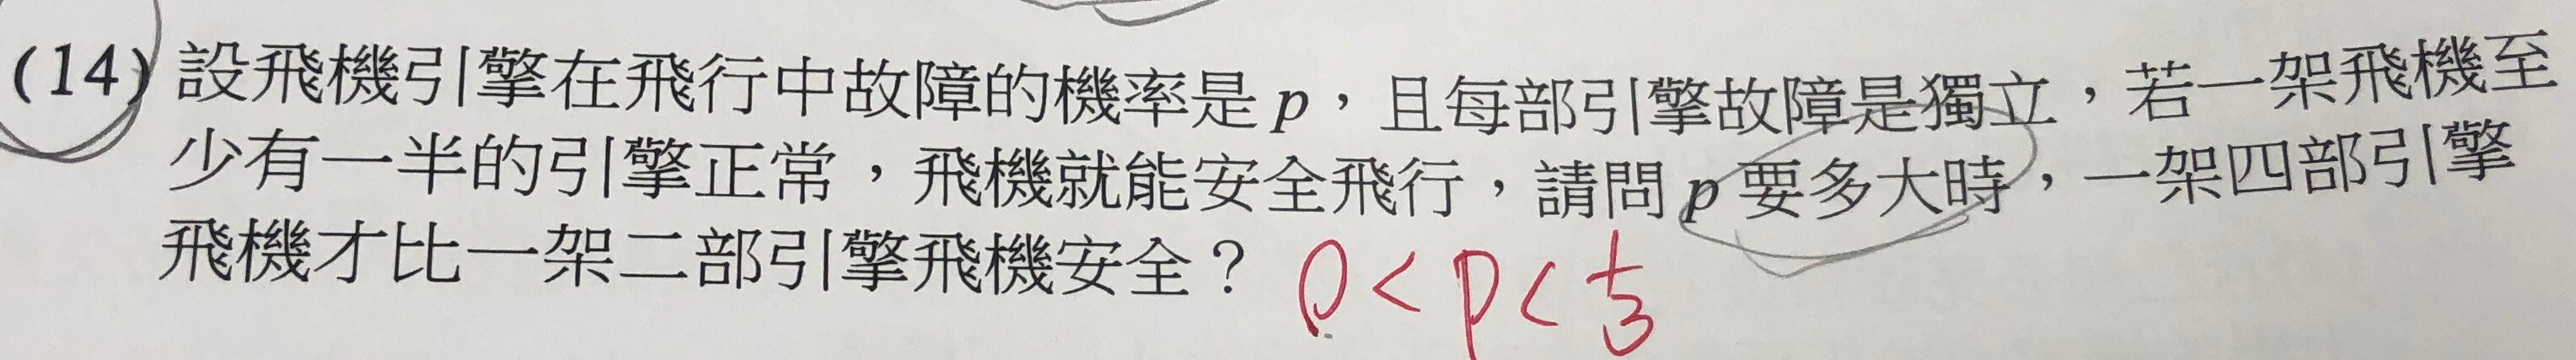 (14) 設飛機引擎在飛行中故障的機率是p，且每部引擎故障是獨立，若一架飛機至
少有一半的引擎正常，飛機就能安全飛行，請問p要多大時，一架四部引擎
飛機才比一架二部引擎飛機安全？ 0<p<1/3